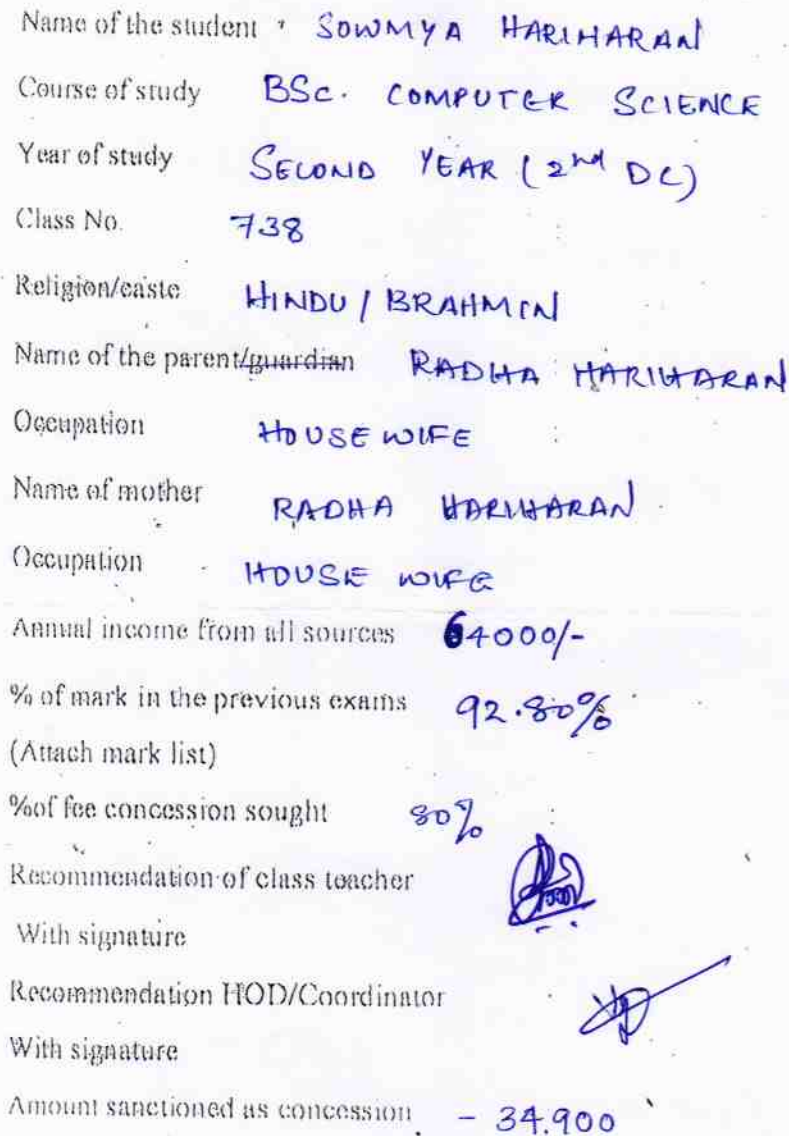 Name of the student : SOWMYA HARIHARAN
Course of study BSc. COMPUTER SCIENCE
Year of study SECOND YEAR (2nd DC)
Class No. 738
Religion/caste HINDU / BRAHMIN
Name of the parent/guardian RADHA HARIHARAN
Occupation HOUSE WIFE
Name of mother RADHA HARIHARAN
Occupation HOUSE WIFE
Annual income from all sources 64000/-
% of mark in the previous exams 92.80%
(Attach mark list)
%of fee concession sought 80%
Recommendation of class teacher
With signature
Recommendation HOD/Coordinator
With signature
Amount sanctioned as concession - 34.900